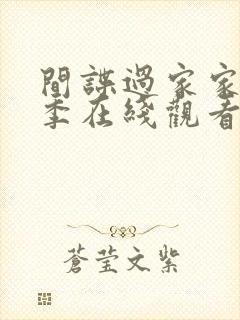 間諜過家家
季在綫觀看
蒼瑩文紫